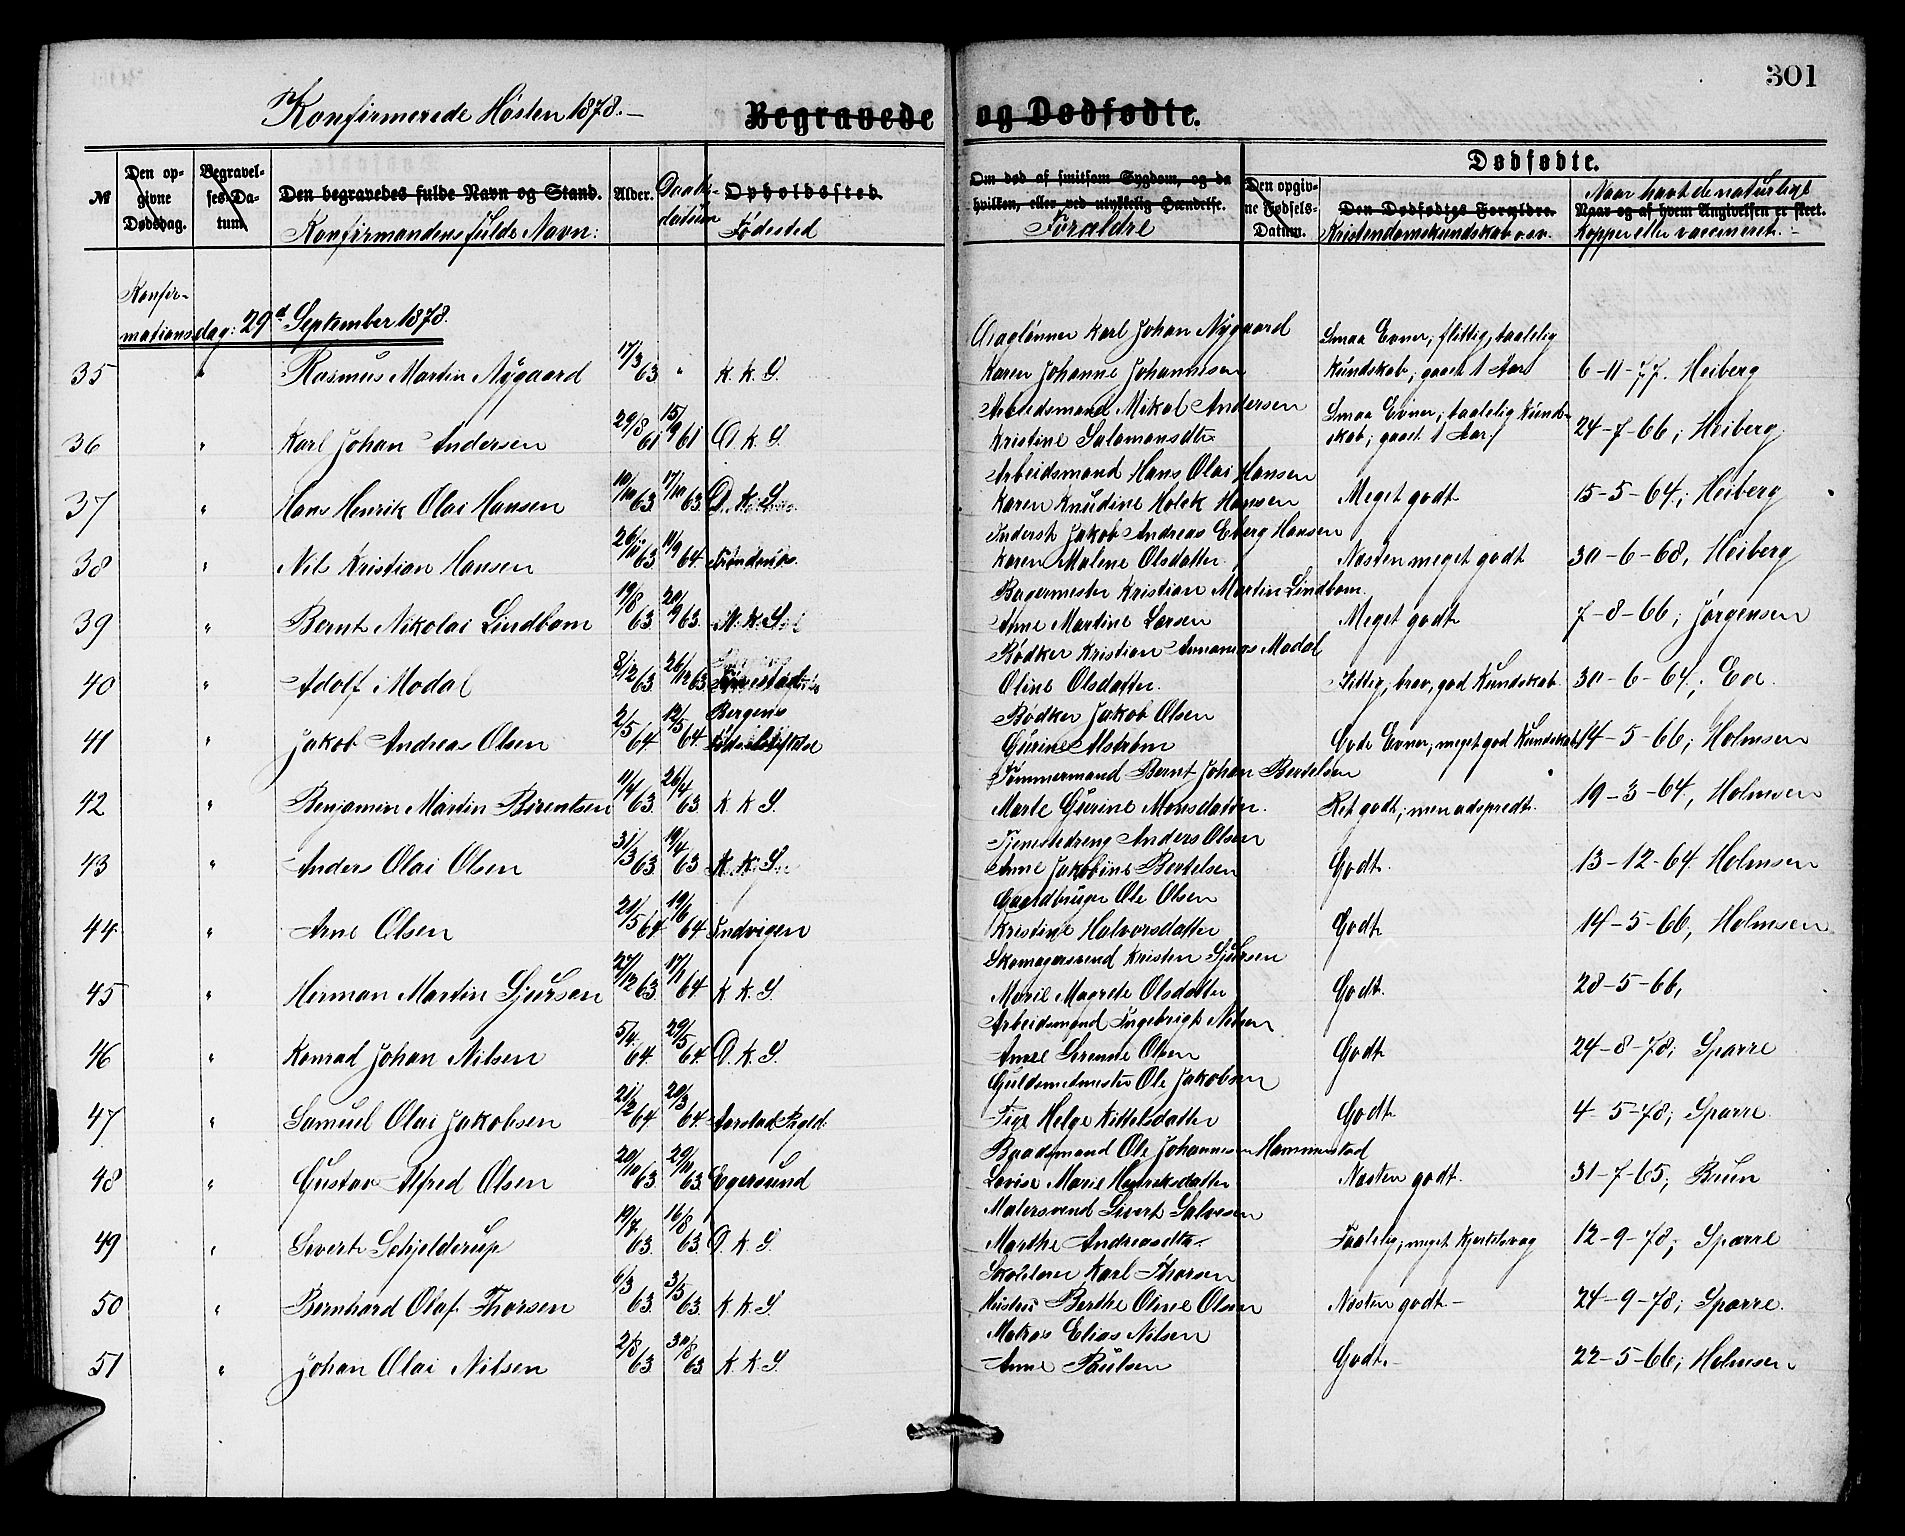 301
Konfirmerede Høsten 1878.-
Begravede og Dødfødte.
Dødfødte.
№ Den opgivne Dødsdag. Begravelses Datum. Den begravedes fulde Navn og Stand. Alder. Daabsdatum Opholdssted. Om død af smitsom Sygdom, og da hvilken, eller ved ulykkelig Hændelse. Den opgivne Fødsels-Datum. Den Dødfødtes Forældre. Naar og af hvem Angivelsen er skeet.
Konfirmandens fulde Navn: Fødested Forældre Kristendomskundskab o.s.v. Naar havt de naturlige Kopper eller vaccineret.-
Konfirmationsdag: 29d September 1878.
Karl Johan Nygaard Smaa Evner, flittig, taalelig
35 " Rasmus Martin Nygaard 17/3 63 " K. K. S. Karen Johanne Johannesen Kundskab; gaaet 1 Aar 6-11-77. Heiberg
Arbeidsmand Mikal Andersen Smaa Evner; taalelig Kund-
36 " Karl Johan Andersen 29/8 61 15/9 61 D K S. Kristine Salamonsdtr skab; gaaet 1 Aar 24-7-66; Heiberg
Arbeidsmand Hans Olai Hansen
37 " Hans Henrik Olai Hansen 10/10 63 17/10 63 D. K. S. Karen Knudine Holck Hansen Meget godt 15-5-64; Heiberg
Inderst Jakob Andreas Eberg Hansen
38 " Nils Kristian Hansen 63 64 Karen Malene Olsdatter Næsten meget godt 30-6-68, Heiberg
Bagermester Kristian Martin Lindbom
39 " Bernt Nikolai Lindbom 19/8 63 20/9 63. K. K. S. Anne Martine Larsen Meget godt 7-8-66; Jørgensen
Bødker Kristian Ananias Modal
40 " Adolf Modal 8/12 63 26/12 63 Oline Olsdatter. Flittig, brav, god Kundskab 30-6-64;
Bergens Bødker Jakob Olsen
41 " Jakob Andreas Olsen 2/5 64 12/5 64 Gurine Alstrøm Gode Evner, meget god Kundskab 14-5-66; Holmsen
Tømmermand Bernt Johan Bertelsen
42 " Benjamin Martin Berentsen 11/4 63. 26/4 63 K K S. Marte Gurine Monsdatter. Ret godt; men adspredt. 19-3-64, Holmsen
Tjenestedreng Anders Olsen
43 " Anders Olai Olsen 31/3 63. 19/4 63 K. K. S. Anne Jakobine Bertelsen Godt. 13-12-64. Holmsen
Gaardbruger Ole Olsen
44 " Arne Olsen 21/5 64 19/6 64 Indvigen Kristine Halvorsdatter Godt 14-5-66, Holmsen
Skomagersvend Kristen Sjursen
45 " Herman Martin Sjursen 27/12 63. 17/1 64. K K S. Marie Magrete Olsdatter Godt. 28-5-66,
Arbeidsmand Ingebrigt Nilsen
46 " Konrad Johan Nilsen 5/4. 64. 29/5 64. D. K. S. Anne Serene Olsen Godt 24-8-78; Sparre
Guldsmedmester Ole Jakobsen
47 " Samuel Olai Jakobsen 21/2 64 20/3 64. Pige Helge Kittelsdatter Godt 4-5-78; Sparre
Baadsmand Ole Johannesen Hammerstad
48 " Gustav Alfred Olsen 20/10 63. 29/10 63 Egersund Lovise Marie Henriksdatter Næsten godt. 31-7-65; Brun
Malersvend Sivert Salvesen
49 " Sivert Schjelderup 19/7 63. 16/8 63. D. K. S. Marthe Andreasdtr. Taalelig; meget kjertelsvag 12-9-78; Sparre
Skolelærer Karl Thorsen
50 " Bernhard Olaf Thorsen 6/3 63. 3/5 63. K K S Hustru Berthe Oline Olsen Næsten godt- 24-9-78; Sparre.
Matros Elias Nilsen
51 " Johan Olai Nilsen 2/8 63 30/8 63 K K S. Anne Paulsen Godt.- 22-5-66; Holmsen